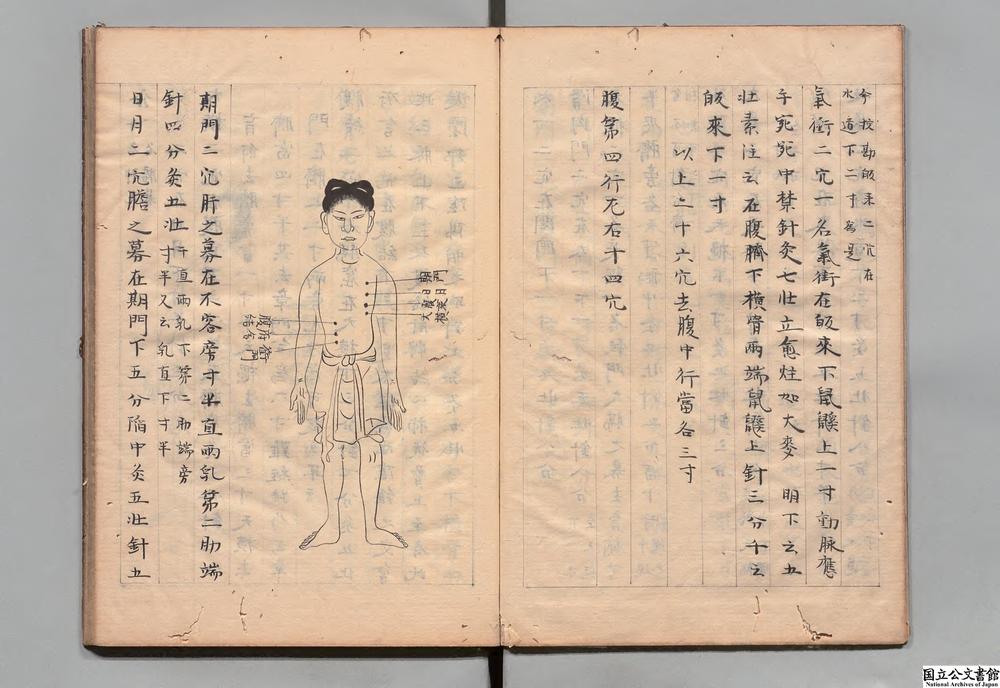 今按勘皈来二穴在
水道下二寸爲題
氣衝二穴一名氣街在皈來下鼠鼷上一寸動脉應
手宛宛中禁針灸七壯立愈炷如大麥 明下云五
壯素注云在腹臍下横骨兩端鼠鼷上針三分千云
皈來下一寸
以上二十六穴去腹中行當各三寸
腹第四行左右十四穴
期門
日月
腹哀
大横
腹結
府舍
衝門
期門二穴肝之募在不容旁寸半直兩乳第二肋端
針四分灸五壯
千直兩乳下第二肋端旁
寸半又云乳直下寸半
日月二穴膽之募在期門下五分陷中灸五壯針五
国立公文書館
National Archives of Japan